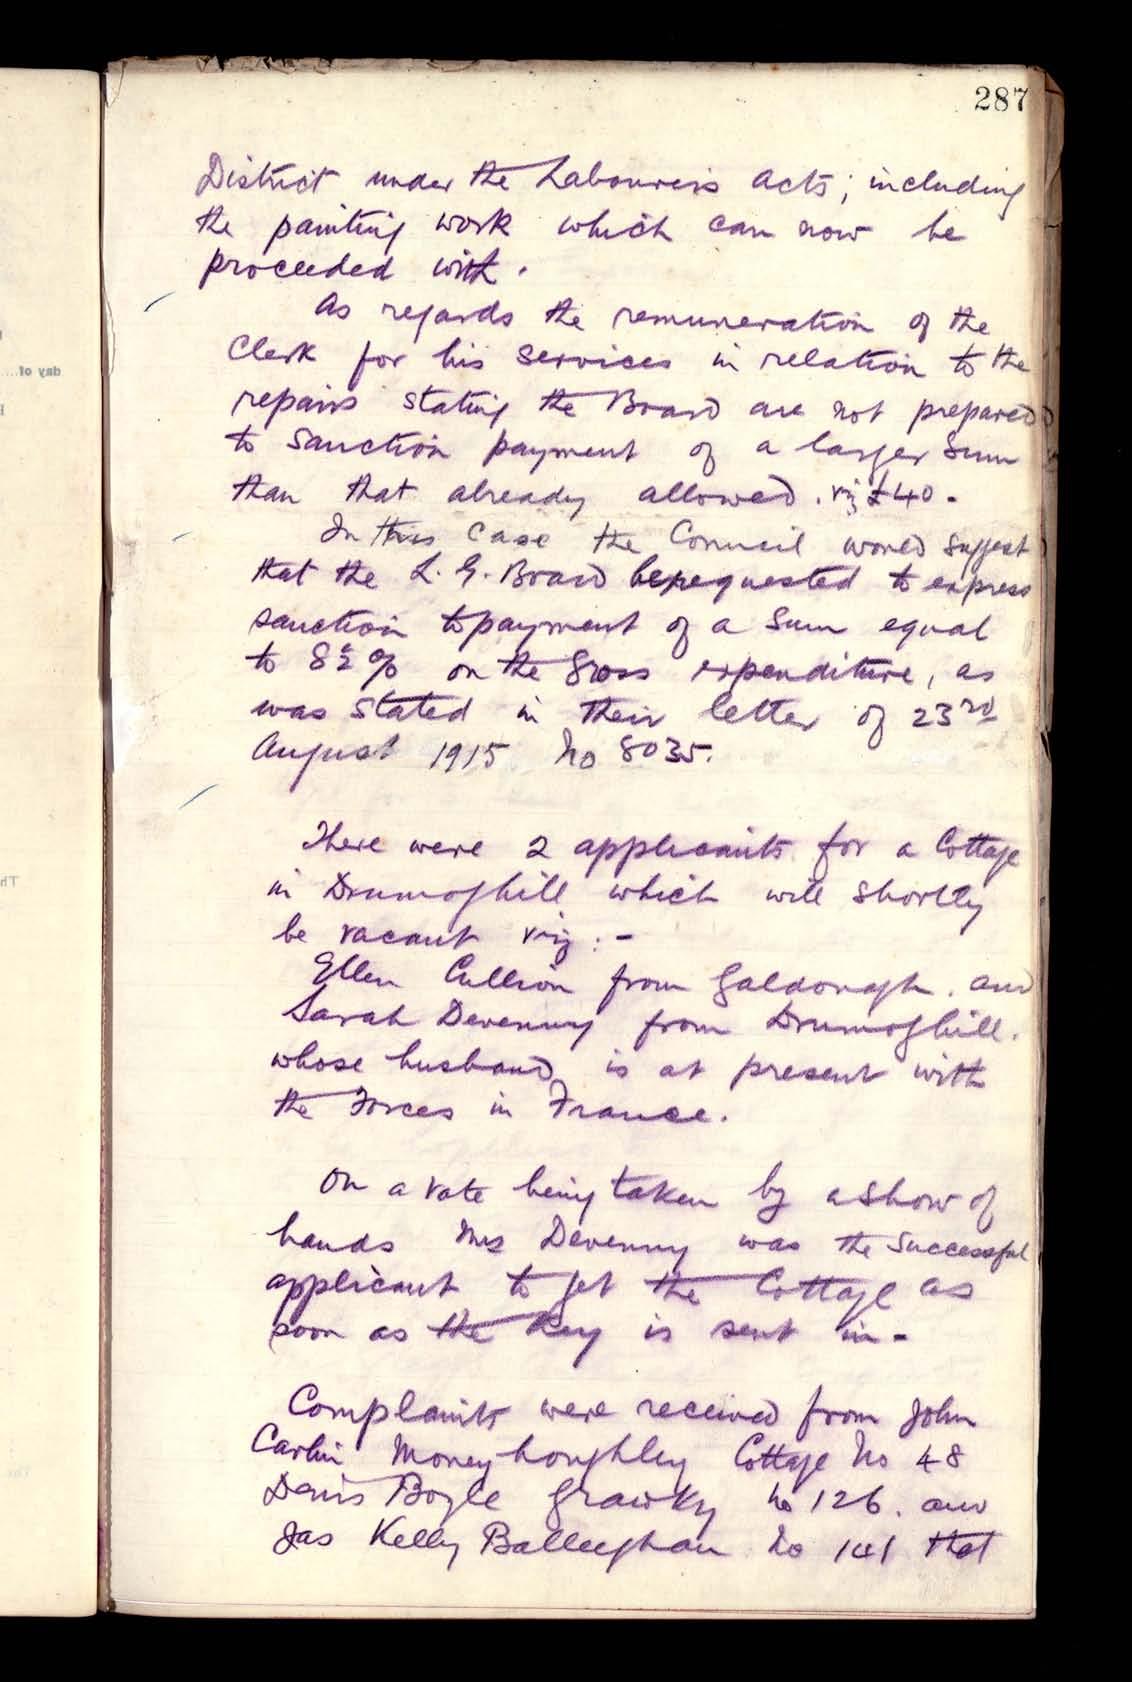 287
District under the Labourers acts; including
the painting work which can now be
proceeded with.
As regards the remuneration of the
Clerk for his services in relation to the
repairs stating the Board are not prepared
to sanction payment of a larger sum
than that already allowed. viz £40-
In this case the Council would suggest
that the L. G. Board be requested to express
sanction to payment of a sum equal
to 8½ % on the gross expenditure, as
was stated in their letter of 23rd
August 1915 No 8035.
There were 2 applicants for a Cottage
in Drumoghill which will shortly
be vacant viz:-
Ellen Cullion from Galdonagh. and
Sarah Devenny from Drumoghill.
whose husband is at present with
the Forces in France.
On a vote being taken by a show of
hands Mrs Devenny was the successful
applicant to get the Cottage as
soon as the Key is sent in-
Complaints were received from John
Carlin Moneyhoughley Cottage No 48
Denis Boyle Grawky No 126. and
Jas Kelly Balleeghan No 141 that
day of...